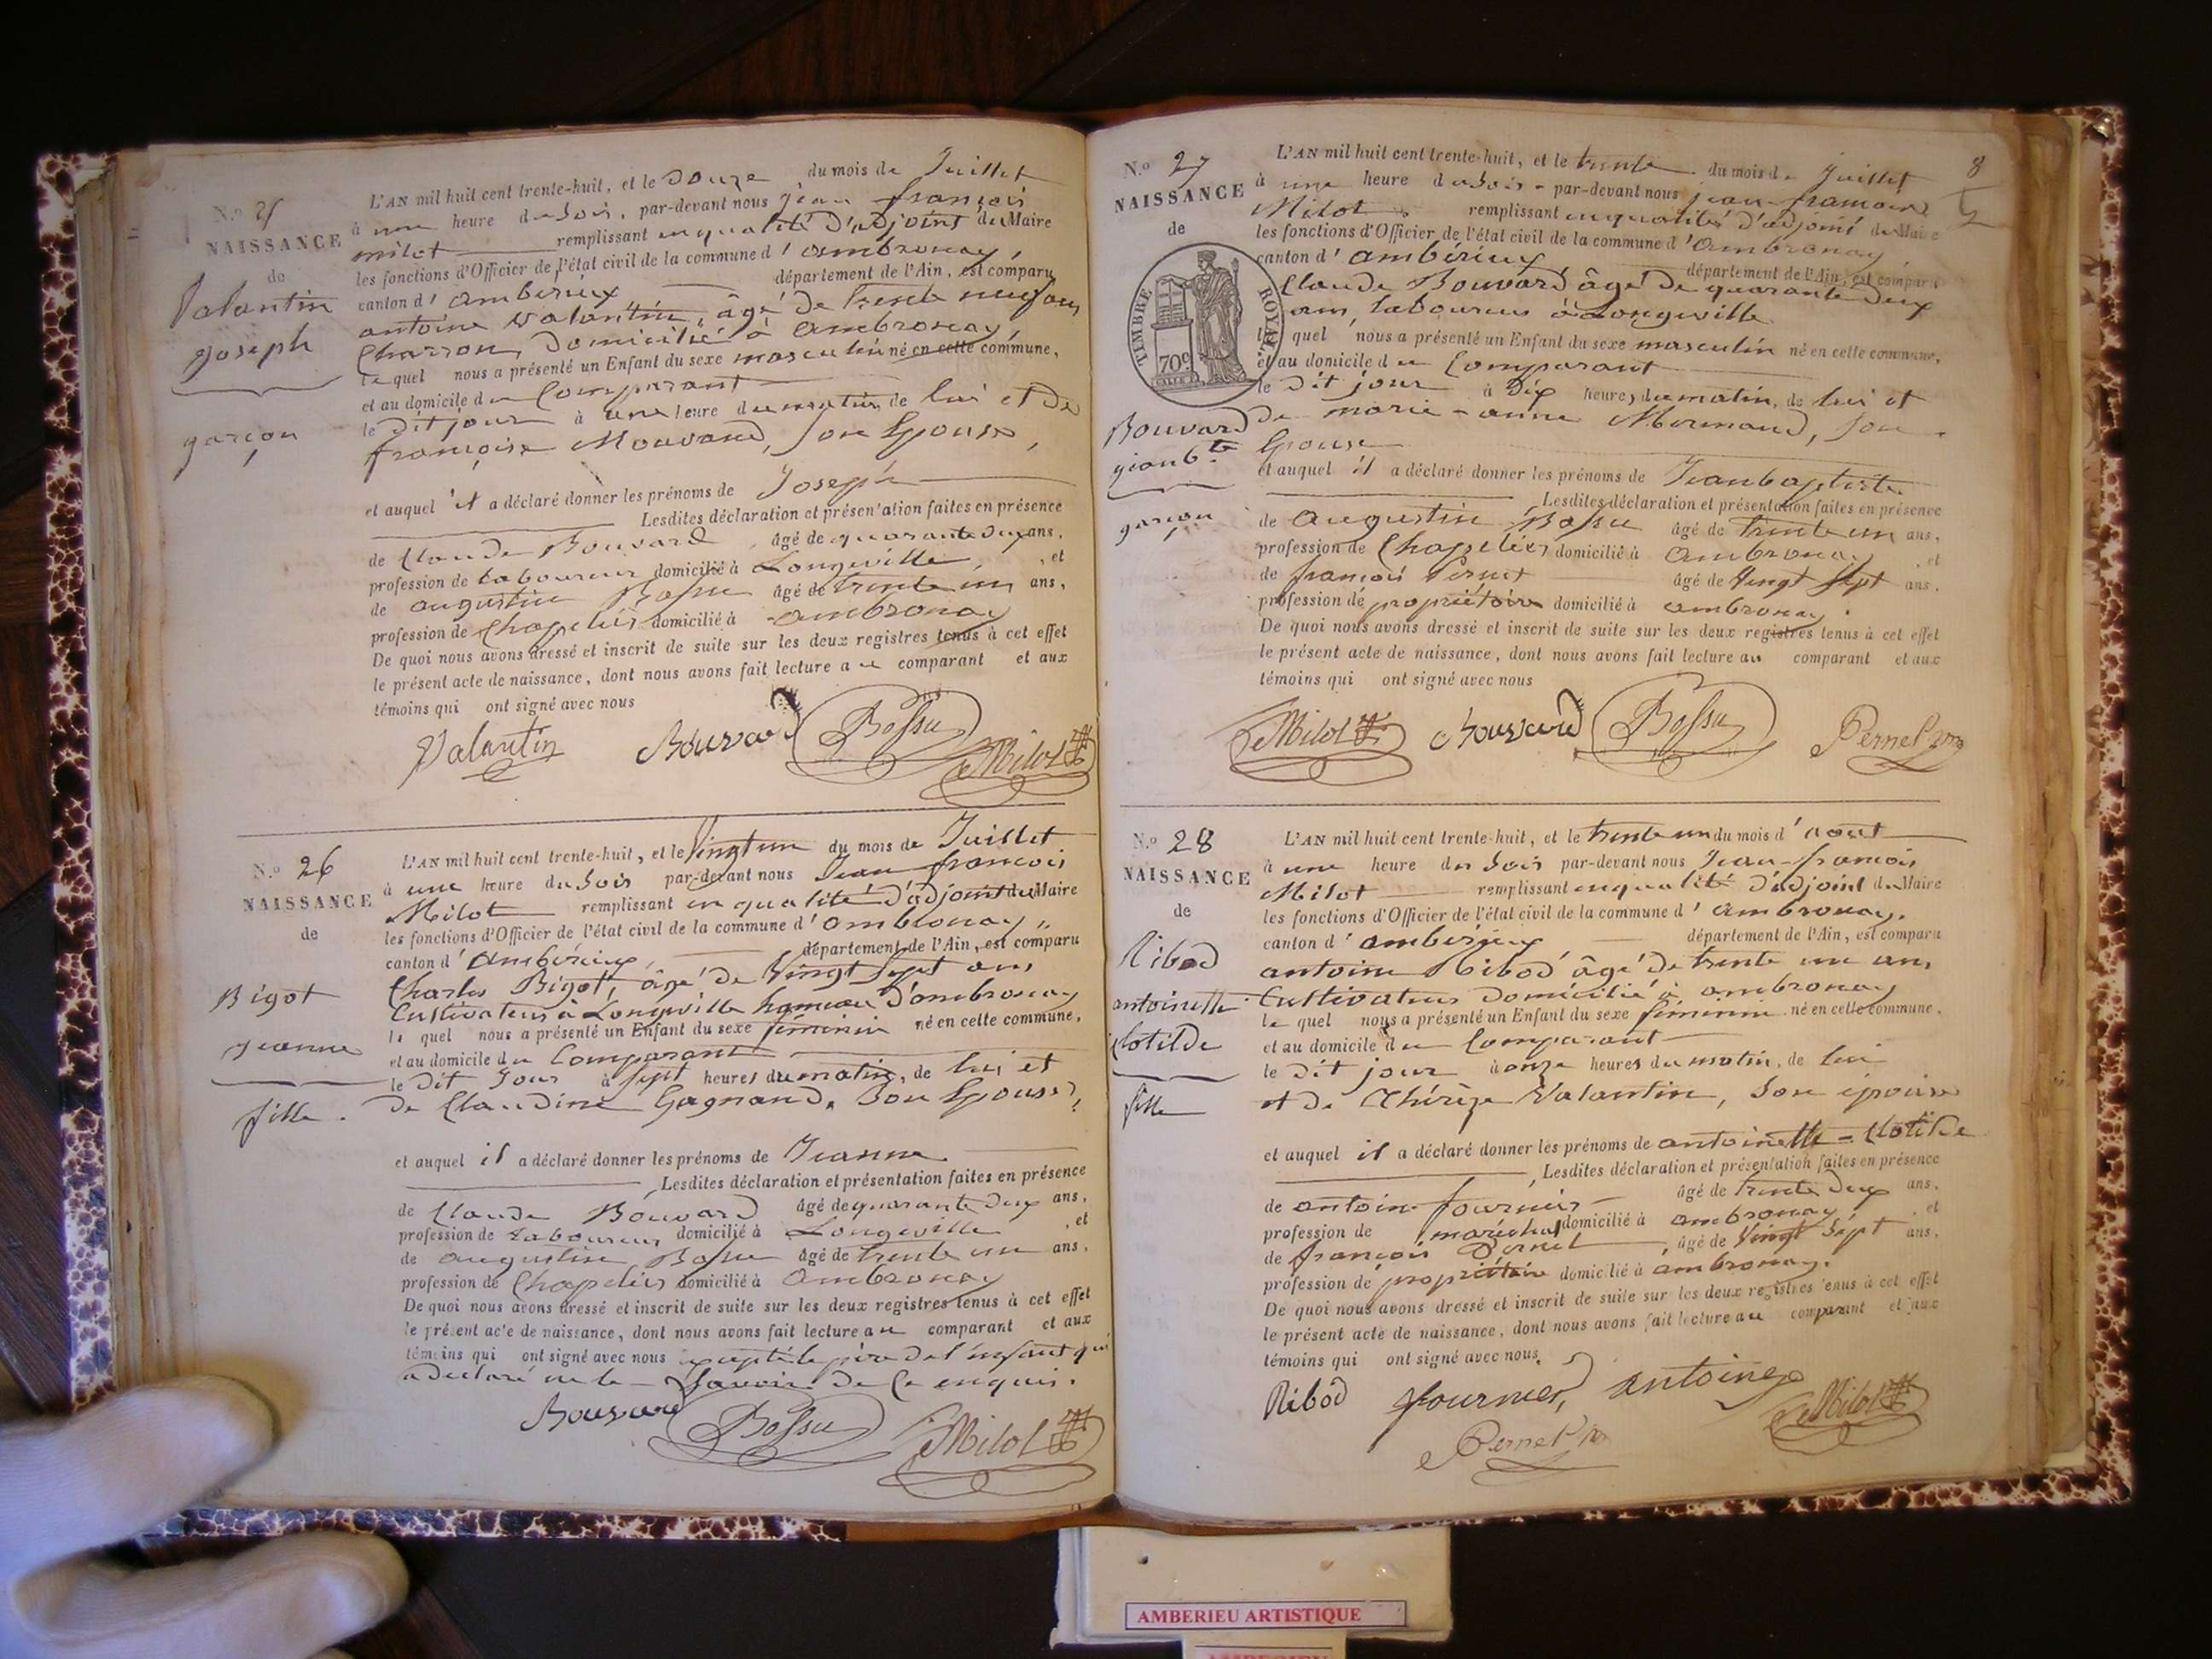 N.o 25
NAISSANCE
de
Valantin
Joseph
garçon
L'AN mil huit cent trente-huit, et le Douze du mois de Juillet
à une heure du Soir, par-devant nous jean françois
milot remplissant en qualité D'adjoint du Maire
les fonctions d'Officier de l'état civil de la commune d'ambronay,
canton d'amberieux département de l'Ain, est comparu
antoine Valantin, âgé De trente neuf ans
Charron, Domicilié à ambronay,
le quel nous a présenté un Enfant du sexe masculin né en cette commune,
et au domicile du Comparant
le Dit jour à une heure du matin, de lui et De
françoise Mouvand, son Epouse,
et auquel il a déclaré donner les prénoms de Joseph
Lesdites déclaration et présentation faites en présence
de Claude Bouvard âgé de quarante deux ans,
profession de laboureur domicilié à Longeville, et
de augustin Bossu âgé de trente un ans,
profession de Chapelier domicilié à ambronay
De quoi nous avons dressé et inscrit de suite sur les deux registres tenus à cet effet
le présent acte de naissance, dont nous avons fait lecture au comparant et aux
témoins qui ont signé avec nous
Valantin Bouvard Bossu Milot
N.o 26
NAISSANCE
de
Bigot
Jeanne
fille.
L'AN mil huit cent trente-huit, et le Vingt un du mois de Juillet
à une heure du Soir par-devant nous Jean françois
Milot remplissant en qualité D'adjoint du Maire
les fonctions d'Officier de l'état civil de la commune d'ambronay,
canton d'Ambérieux, département de l'Ain, est comparu
Charles Bigot, âgé De Vingt Sept ans
Cultivateur à Longeville hameau D'ambronay
le quel nous a présenté un Enfant du sexe féminin né en cette commune,
et au domicile du Comparant
le Dit Jour à Sept heures du matin, de lui et
De Claudine Gagnand, Son Epouse,
et auquel il a déclaré donner les prénoms de Jeanne
Lesdites déclaration et présentation faites en présence
de Claude Bouvard âgé de quarante Deux ans,
profession de Laboureur domicilié à Longeville, et
de augustin Bossu âgé de trente un ans,
profession de Chapelier domicilié à Ambronay
De quoi nous avons dressé et inscrit de suite sur les deux registres tenus à cet effet
le présent acte de naissance, dont nous avons fait lecture au comparant et aux
témoins qui ont signé avec nous excepté le père de l'enfant qui
a declaré ne le Savoir De Ce enquis.
Bouvard Bossu Milot
8
N.o 27
NAISSANCE
de
TIMBRE ROYAL
70c
Bouvard
jean bte
garçon
L'AN mil huit cent trente-huit, et le trente du mois de Juillet
à une heure du Soir par-devant nous jean-francois
Milot remplissant en qualité d'adjoint du Maire
les fonctions d'Officier de l'état civil de la commune d'ambronay
canton d'ambérieux département de l'Ain, est comparu
Claude Bouvard âgé De quarante Deux
ans, laboureur à Longeville
le quel nous a présenté un Enfant du sexe masculin né en cette commune,
et au domicile du Comparant
le Dit jour à Dix heures du matin, de lui et
De marie-anne Mermand, Son
Epouse
et auquel il a déclaré donner les prénoms de Jean baptiste
Lesdites déclaration et présentation faites en présence
de augustin Bossu âgé de trente un ans,
profession de Chapelier domicilié à Ambronay, et
de françois Pernet âgé de Vingt Sept ans,
profession de propriétaire domicilié à ambronay.
De quoi nous avons dressé et inscrit de suite sur les deux registres tenus à cet effet
le présent acte de naissance, dont nous avons fait lecture au comparant et aux
témoins qui ont signé avec nous
Milot Bouvard Bossu Pernet
N.o 28
NAISSANCE
de
Ribod
antoinette
Clotilde
fille
L'AN mil huit cent trente-huit, et le trente un du mois d'aout
à une heure du Soir par-devant nous Jean-françois
Milot remplissant en qualité D'adjoint du Maire
les fonctions d'Officier de l'état civil de la commune d'ambronay.
canton d'amberieux département de l'Ain, est comparu
antoine Ribod âgé De trente un an,
Cultivateur Domicilié à ambronay
le quel nous a présenté un Enfant du sexe féminin né en cette commune,
et au domicile du Comparant
le Dit jour à onze heures du matin, de lui
et De Thérèze Valantin, Son épouse
et auquel il a déclaré donner les prénoms de antoinette-Clotilde
Lesdites déclaration et présentation faites en présence
de antoine fournier âgé de trente Deux ans,
profession de maréchal domicilié à ambronay, et
de françois Pernet, âgé de Vingt Sept ans,
profession de propriétaire domicilié à ambronay.
De quoi nous avons dressé et inscrit de suite sur les deux registres tenus à cet effet
le présent acte de naissance, dont nous avons fait lecture au comparant et aux
témoins qui ont signé avec nous.
Ribod fournier, antoine Milot
Pernet
AMBERIEU ARTISTIQUE